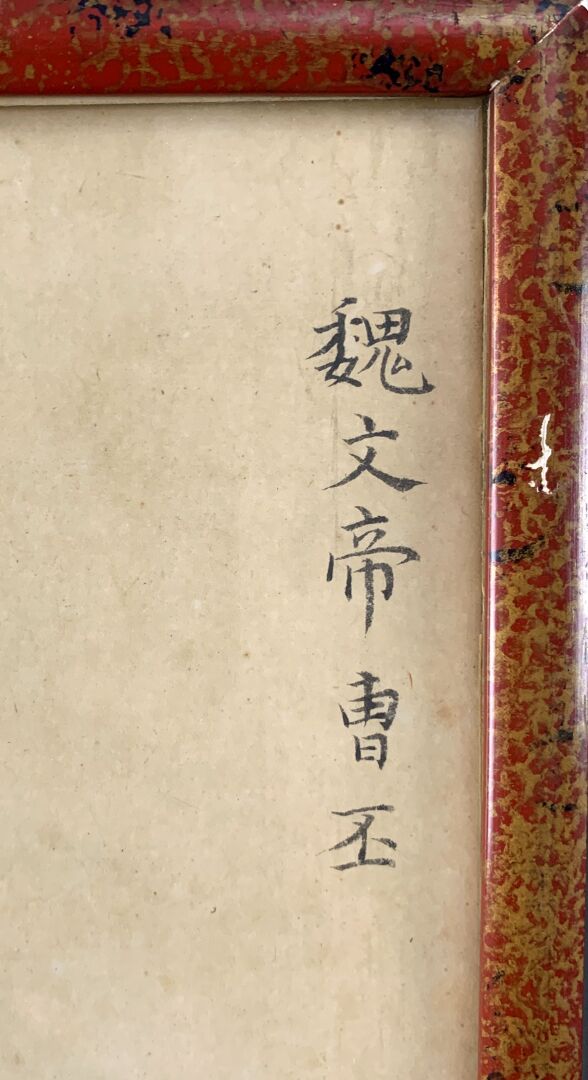 魏文帝曹丕